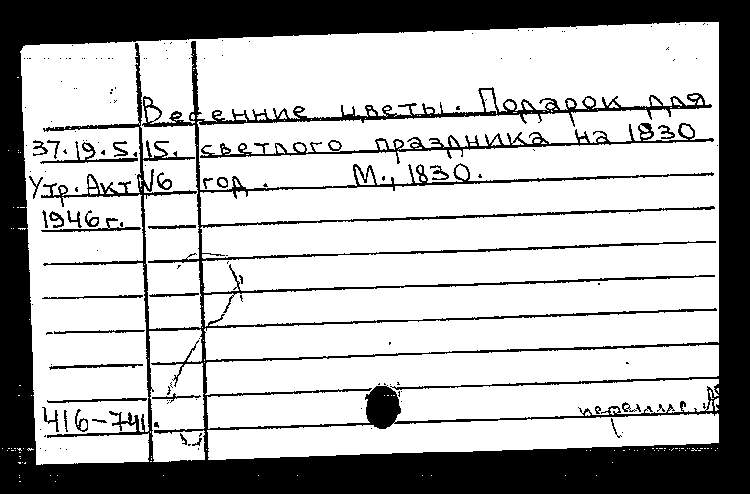 Весенние цветы. Подарок для
37.19.5.15. светлого праздника на 1830
Утр. Акт №6 год. М., 1830.
1946 г.
416-741.
перепис.